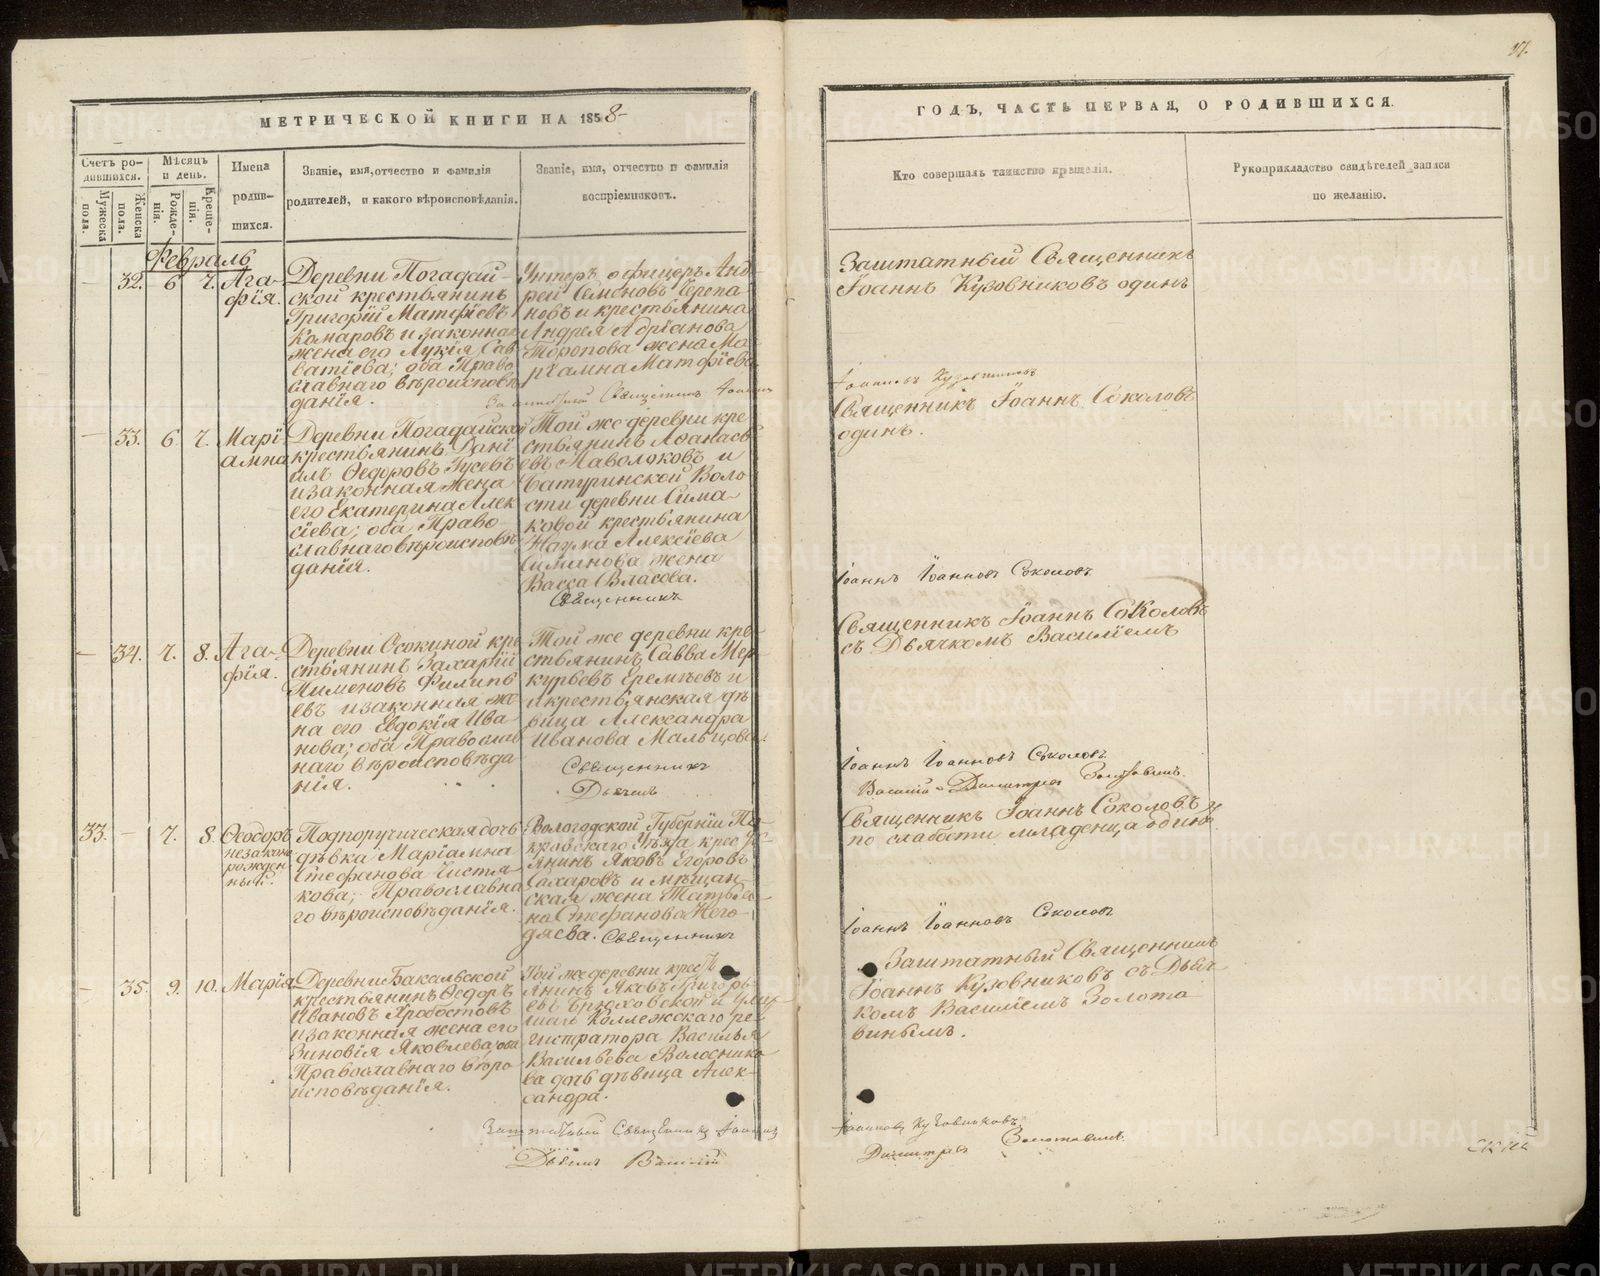 17.
МЕТРИЧЕСКОЙ КНИГИ НА 1858
ГОДЪ, ЧАСТЬ ПЕРВАЯ, О РОДИВШИХСЯ.
Счетъ ро-
дившихся.
Мужеска
пола.
Женска
пола.
Мѣсяцъ
и день.
Рожде-
нія.
Креще-
нія.
Имена
родив-
шихся.
Званіе, имя, отчество и фамилія
родителей, и какого вѣроисповѣданія.
Званіе, имя, отчество и фамилія
воспріемниковъ.
Кто совершалъ таинство крещенія.
Рукоприкладство свидѣтелей записи
по желанію.
Февраль
32. 6 7.
Ага-
фія.
Деревни Погадай-
ской крестьянинъ
Григорій Матфіевъ
Комаровъ и законная
жена его Лукія Сав
ватіева; оба Право
славнаго вѣроисповѣ
данія.
Унтеръ офицеръ Анд-
рей Семеновъ Черепа-
новъ и крестьянина
Андрея Адріанова
Торопова жена Ма-
ріамна Матфіева
Заштатный Священникъ Іоаннъ
Заштатный Священникъ
Іоаннъ Кузовниковъ одинъ
33. 6 7.
Марі
амна
Деревни Погадайской
крестьянинъ Дані
илъ Ѳедоровъ Гусевъ
и законная жена
его Екатерина Алек
сіева; оба Право
славнаго вѣроисповѣ
данія.
Той же деревни кре
стьянинъ Аѳанась
евъ Наволоковъ и
Батуринской Воло
сти деревни Сима-
ковой крестьянина
Наума Алексіева
Симанова жена
Васса Власова.
Священникъ
Священникъ Іоаннъ Соколовъ
одинъ.
Іоаннъ Іоанновъ Соколовъ
34. 7. 8.
Ага-
фія.
Деревни Осокиной кре
стьянинъ Захарій
Пименовъ Филипь
евъ и законная же
на его Евдокія Ива
нова; оба Православ
наго вѣроисповѣда
нія.
Той же деревни кре-
стьянинъ Савва Мер
курьевъ Еремѣевъ и
крестьянская дѣ
вица Александра
Иванова Мальцова
Священникъ
Дьячекъ
Священникъ Іоаннъ Соколовъ
съ Дьячкомъ Василіемъ
Іоаннъ Іоанновъ Соколовъ
Василій Димитріевъ
33. 7. 8.
Ѳеодоръ
незакон
рожден
ный.
Подпоручическая дочь
дѣвка Маріамна
Стефанова Чистя
кова; Православна
го вѣроисповѣданія.
Вологодской Губерніи
Уѣзда крес
янинъ Яковъ Егоровъ
Сахаровъ и мѣщан-
ская жена Татья
на Стефанова Него-
дяева. Священникъ
Священникъ Іоаннъ Соколовъ
по слабости младенца одинъ
Іоаннъ Іоанновъ Соколовъ
35. 9. 10.
Марія
Деревни Бакальской
крестьянинъ Ѳедоръ
Ивановъ Хвостовъ
и законная жена его
Зиновія Яковлева, оба
Православнаго вѣро
исповѣданія.
Той же деревни крест
янинъ Яковъ Григорь
евъ Брюховской и
Коллежскаго ре
гистратора Василья
Васильева Волоснико
ва дочь дѣвица Алек-
сандра.
Заштатный Священникъ Іоаннъ
Дьячекъ Василій
Заштатный Священникъ
Іоаннъ Кузовниковъ съ Дьяч
комъ Василіемъ Золота
виным.
Іоанновъ Кузовниковъ
Димитріевъ Золотавинъ
METRIKI.GASO-URAL.RU